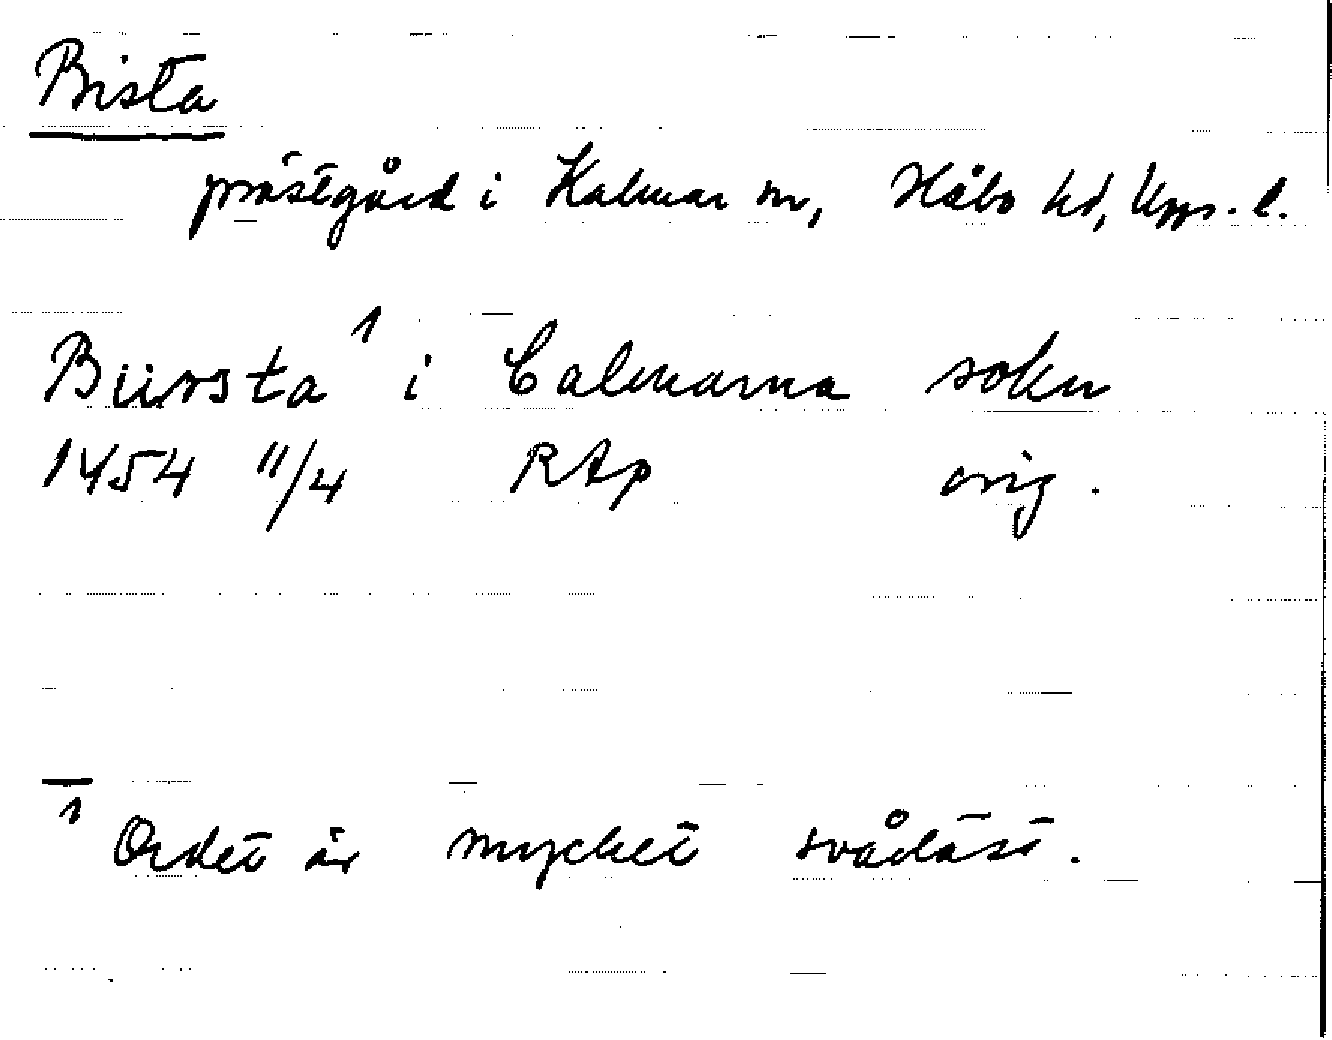 Bista
prästgård i Kalmar sn, Håbo hd, Upps. l.
Biirsta¹ i Calmarna sokn
1454 11/4 RAp orig.
¹ Ordet är mycket svårläst.